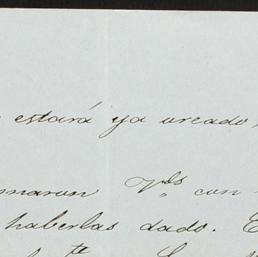 estará ya oreado,
maron Vds con
haberlas dado. E
te